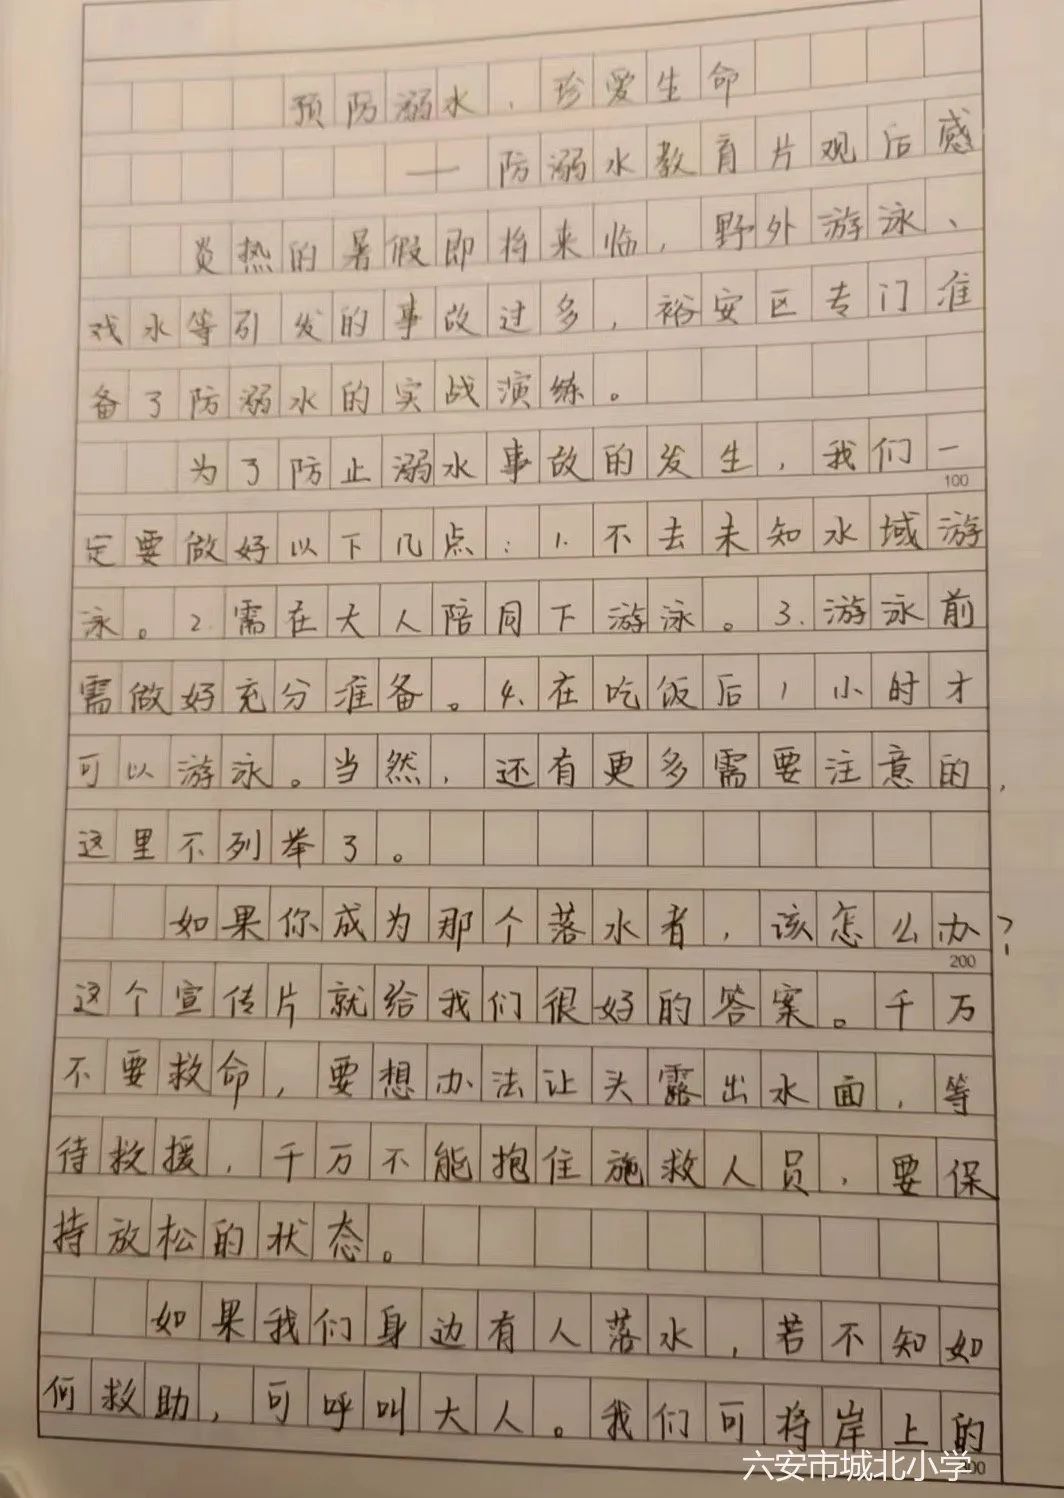 预防溺水，珍爱生命
——防溺水教育片观后感
炎热的暑假即将来临，野外游泳、
戏水等引发的事故过多，裕安区专门准
备了防溺水的实战演练。
为了防止溺水事故的发生，我们一
100
定要做好以下几点：1.不去未知水域游
泳。2.需在大人陪同下游泳。3.游泳前
需做好充分准备。4.在吃饭后1小时才
可以游泳。当然，还有更多需要注意的，
这里不列举了。
如果你成为那个落水者，该怎么办？
200
这个宣传片就给我们很好的答案。千万
不要救命，要想办法让头露出水面，等
待救援，千万不能抱住施救人员，要保
持放松的状态。
如果我们身边有人落水，若不知如
何救助，可呼叫大人。我们可将岸上的
六安市城北小学